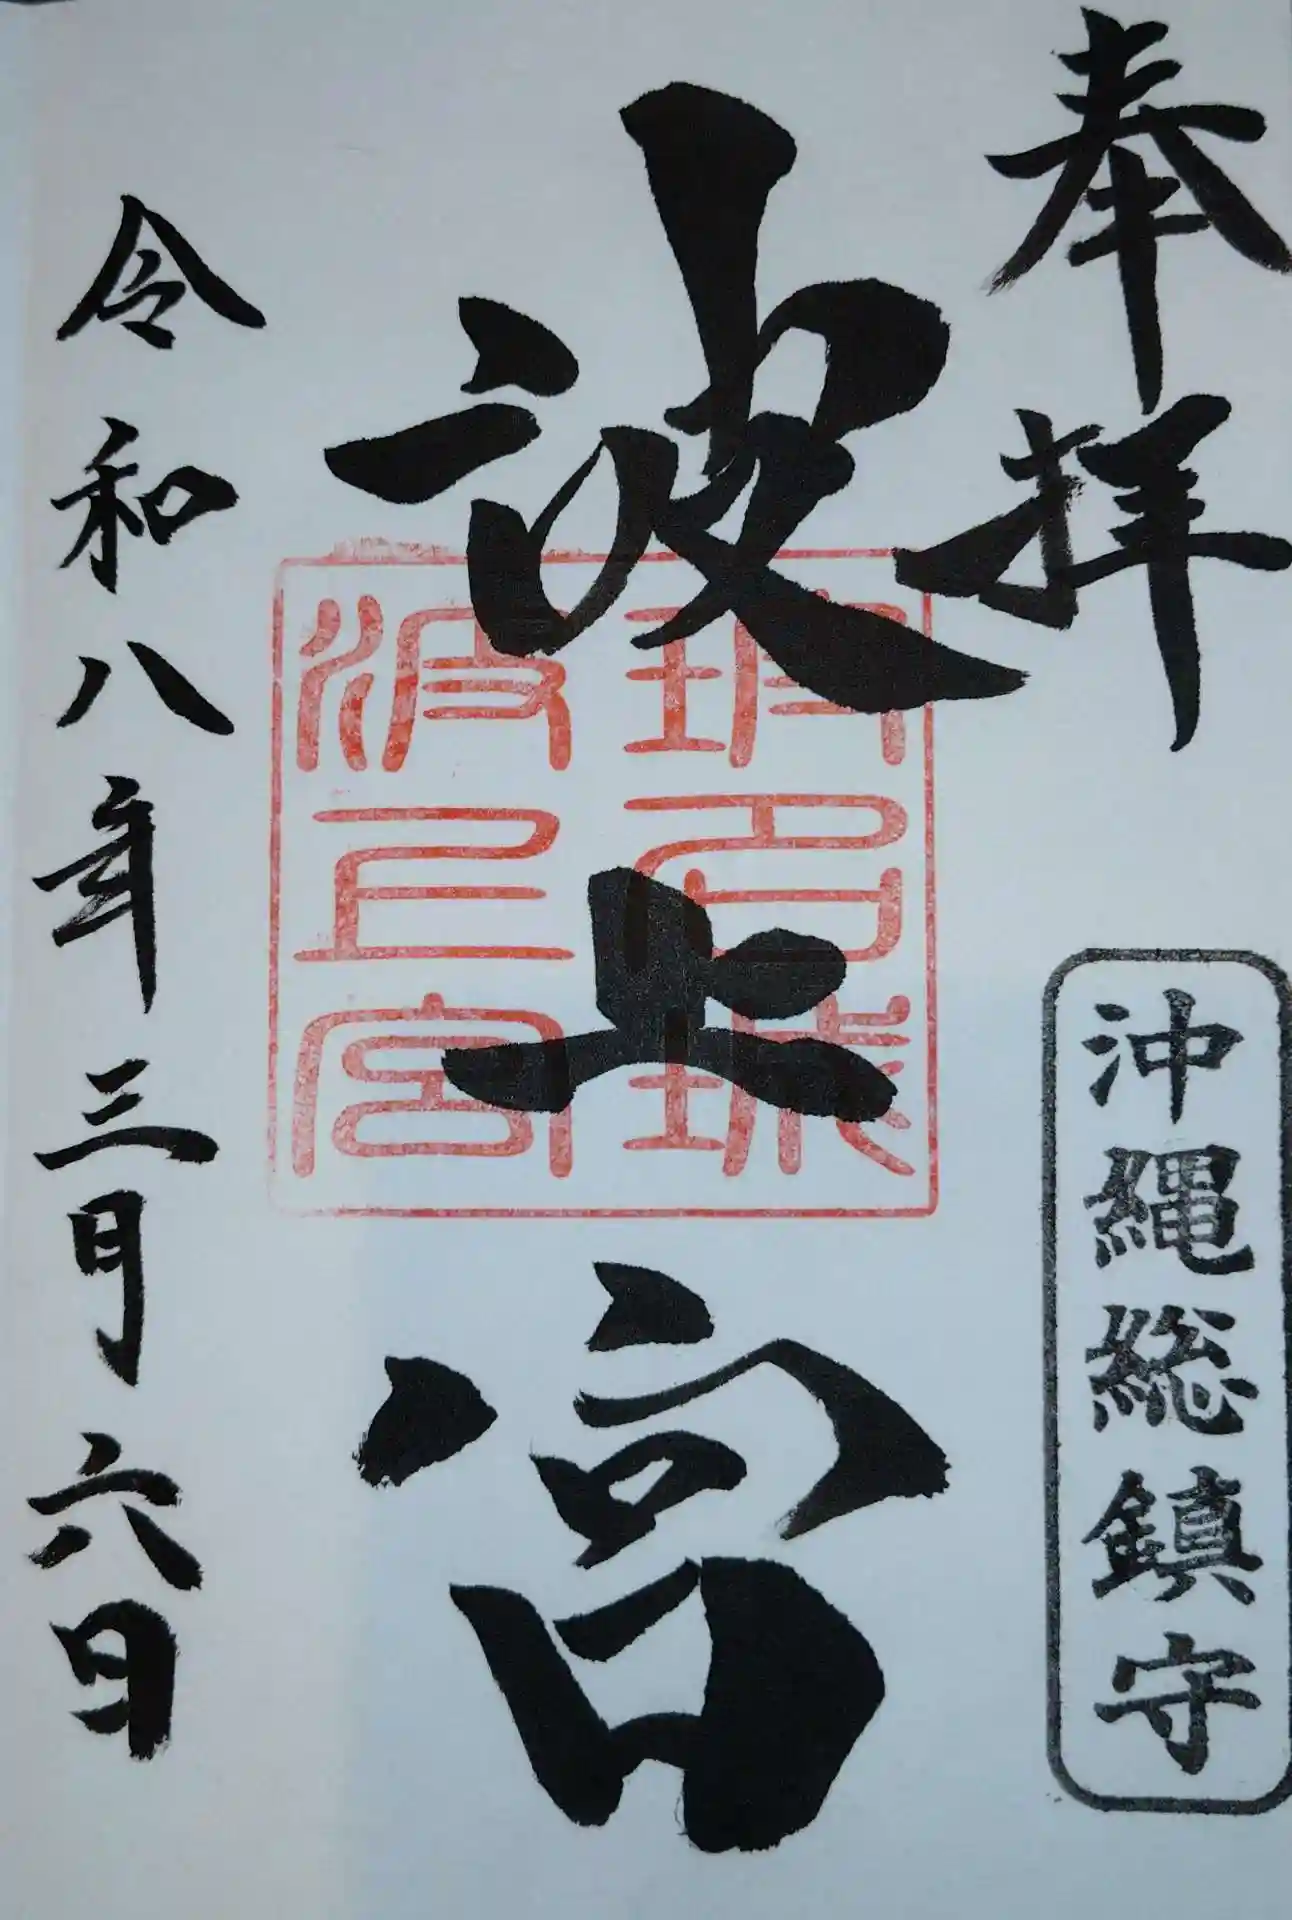 奉拝
沖縄総鎮守
波上宮
琉球国
波上宮
令和八年三月六日